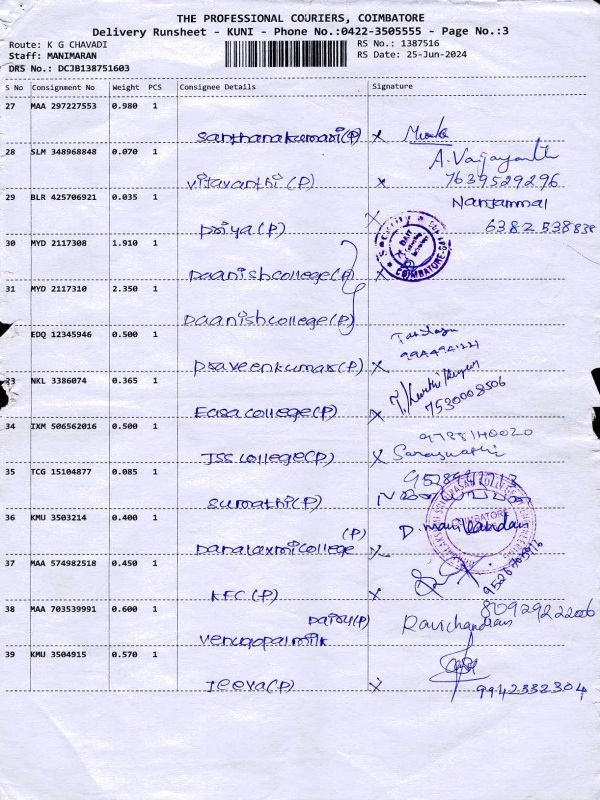 THE PROFESSIONAL COURIERS, COIMBATORE
Delivery Runsheet - KUNI - Phone No.:0422-3505555 - Page No.:3
Route: K G CHAVADI
RS No.: 1387516
Staff: MANIMARAN
RS Date: 25-Jun-2024
DRS No.: DCJB138751603
S No Consignment No Weight PCS Consignee Details Signature
27 MAA 297227553 0.980 1
Santhanakumari(P) x
28 SLM 348968848 0.070 1
A. Vaijayanthi
Vijayanthi(P) x 7639529296
29 BLR 425706921 0.035 1
Nanjammal
Priya(P) x
30 MYD 2117308 1.910 1
Daanish college(P) x
31 MYD 2117310 2.350 1
Daanish college(P)
EDQ 12345946 0.500 1
Praveenkumar(P) x
33 NKL 3386074 0.365 1
7530008506
Easa college(P) x
34 IXM 506562016 0.500 1
JSS college(P) x Saraswathi
35 TCG 15104877 0.085 1
Sumathi(P)
36 KMU 3503214 0.400 1
D. Manikandan
Danalaxmi college (P) x
37 MAA 574982518 0.450 1
KFC (P) x
38 MAA 703539991 0.600 1
Ravichandran
Venugopal milk Dairy(P)
39 KMU 3504915 0.570 1
Jeeva(P) x 9942332304